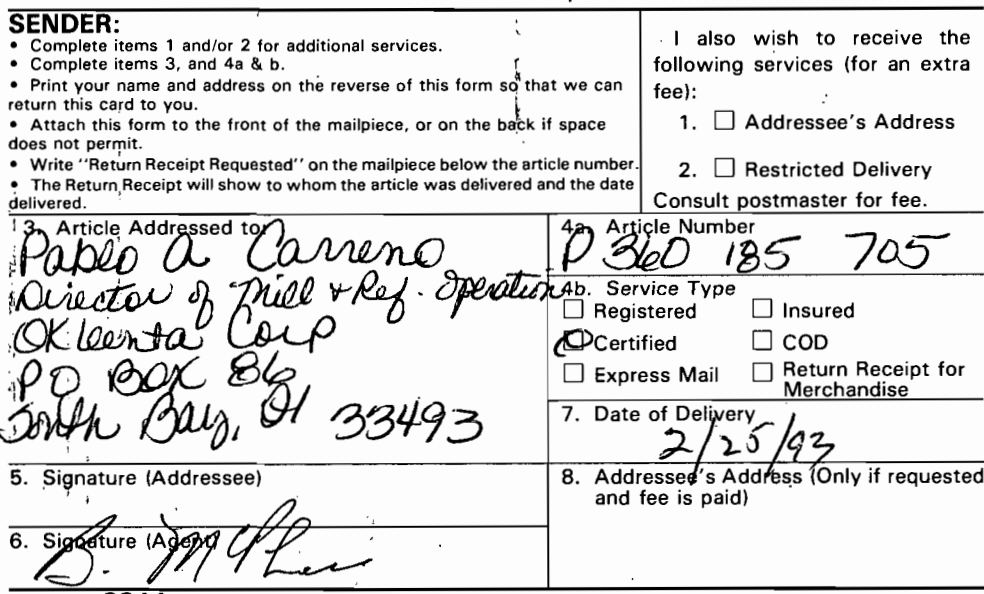 SENDER:
• Complete items 1 and/or 2 for additional services.
• Complete items 3, and 4a & b.
• Print your name and address on the reverse of this form so that we can
return this card to you.
• Attach this form to the front of the mailpiece, or on the back if space
does not permit.
• Write "Return Receipt Requested" on the mailpiece below the article number.
• The Return Receipt will show to whom the article was delivered and the date
delivered.
I also wish to receive the
following services (for an extra
fee):
1. ☐ Addressee's Address
2. ☐ Restricted Delivery
Consult postmaster for fee.
3. Article Addressed to
Pablo A Carreno
Director of Mill & Ref. Operation
Okleenta Corp
PO Box 86
South Bay, Fl 33493
4a. Article Number
P 360 185 705
4b. Service Type
☐ Registered ☐ Insured
☐ Certified ☐ COD
☐ Express Mail ☐ Return Receipt for
Merchandise
7. Date of Delivery
2/25/93
5. Signature (Addressee)
8. Addressee's Address (Only if requested
and fee is paid)
6. Signature (Agent)
B.